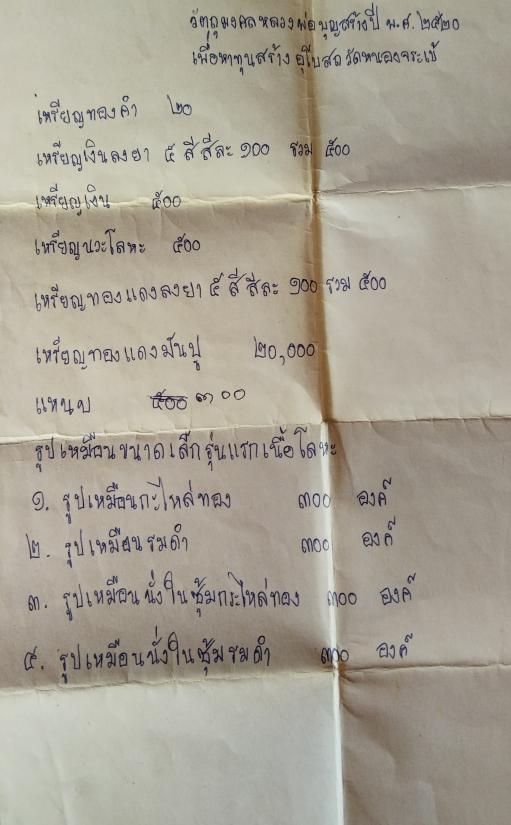 วัตถุมงคลหลวงพ่อบุญสร้างปี พ.ศ. ๒๕๒๐
เพื่อหาทุนสร้างอุโบสถวัดหนองจระเข้
เหรียญทองคำ ๒๐
เหรียญเงินลงยา ๕ สี สีละ ๑๐๐ รวม ๕๐๐
เหรียญเงิน ๕๐๐
เหรียญนวะโลหะ ๕๐๐
เหรียญทองแดงลงยา ๕ สี สีละ ๑๐๐ รวม ๕๐๐
เหรียญทองแดงมันปู ๒๐,๐๐๐
แหนบ ๕๐๐ ๓๐๐
รูปเหมือนขนาดเล็กรุ่นแรกเนื้อโลหะ
๑. รูปเหมือนกะไหล่ทอง ๓๐๐ องค์
๒. รูปเหมือนรมดำ ๓๐๐ องค์
๓. รูปเหมือนนั่งในซุ้มกระไหล่ทอง ๓๐๐ องค์
๔. รูปเหมือนนั่งในซุ้มรมดำ ๓๐๐ องค์